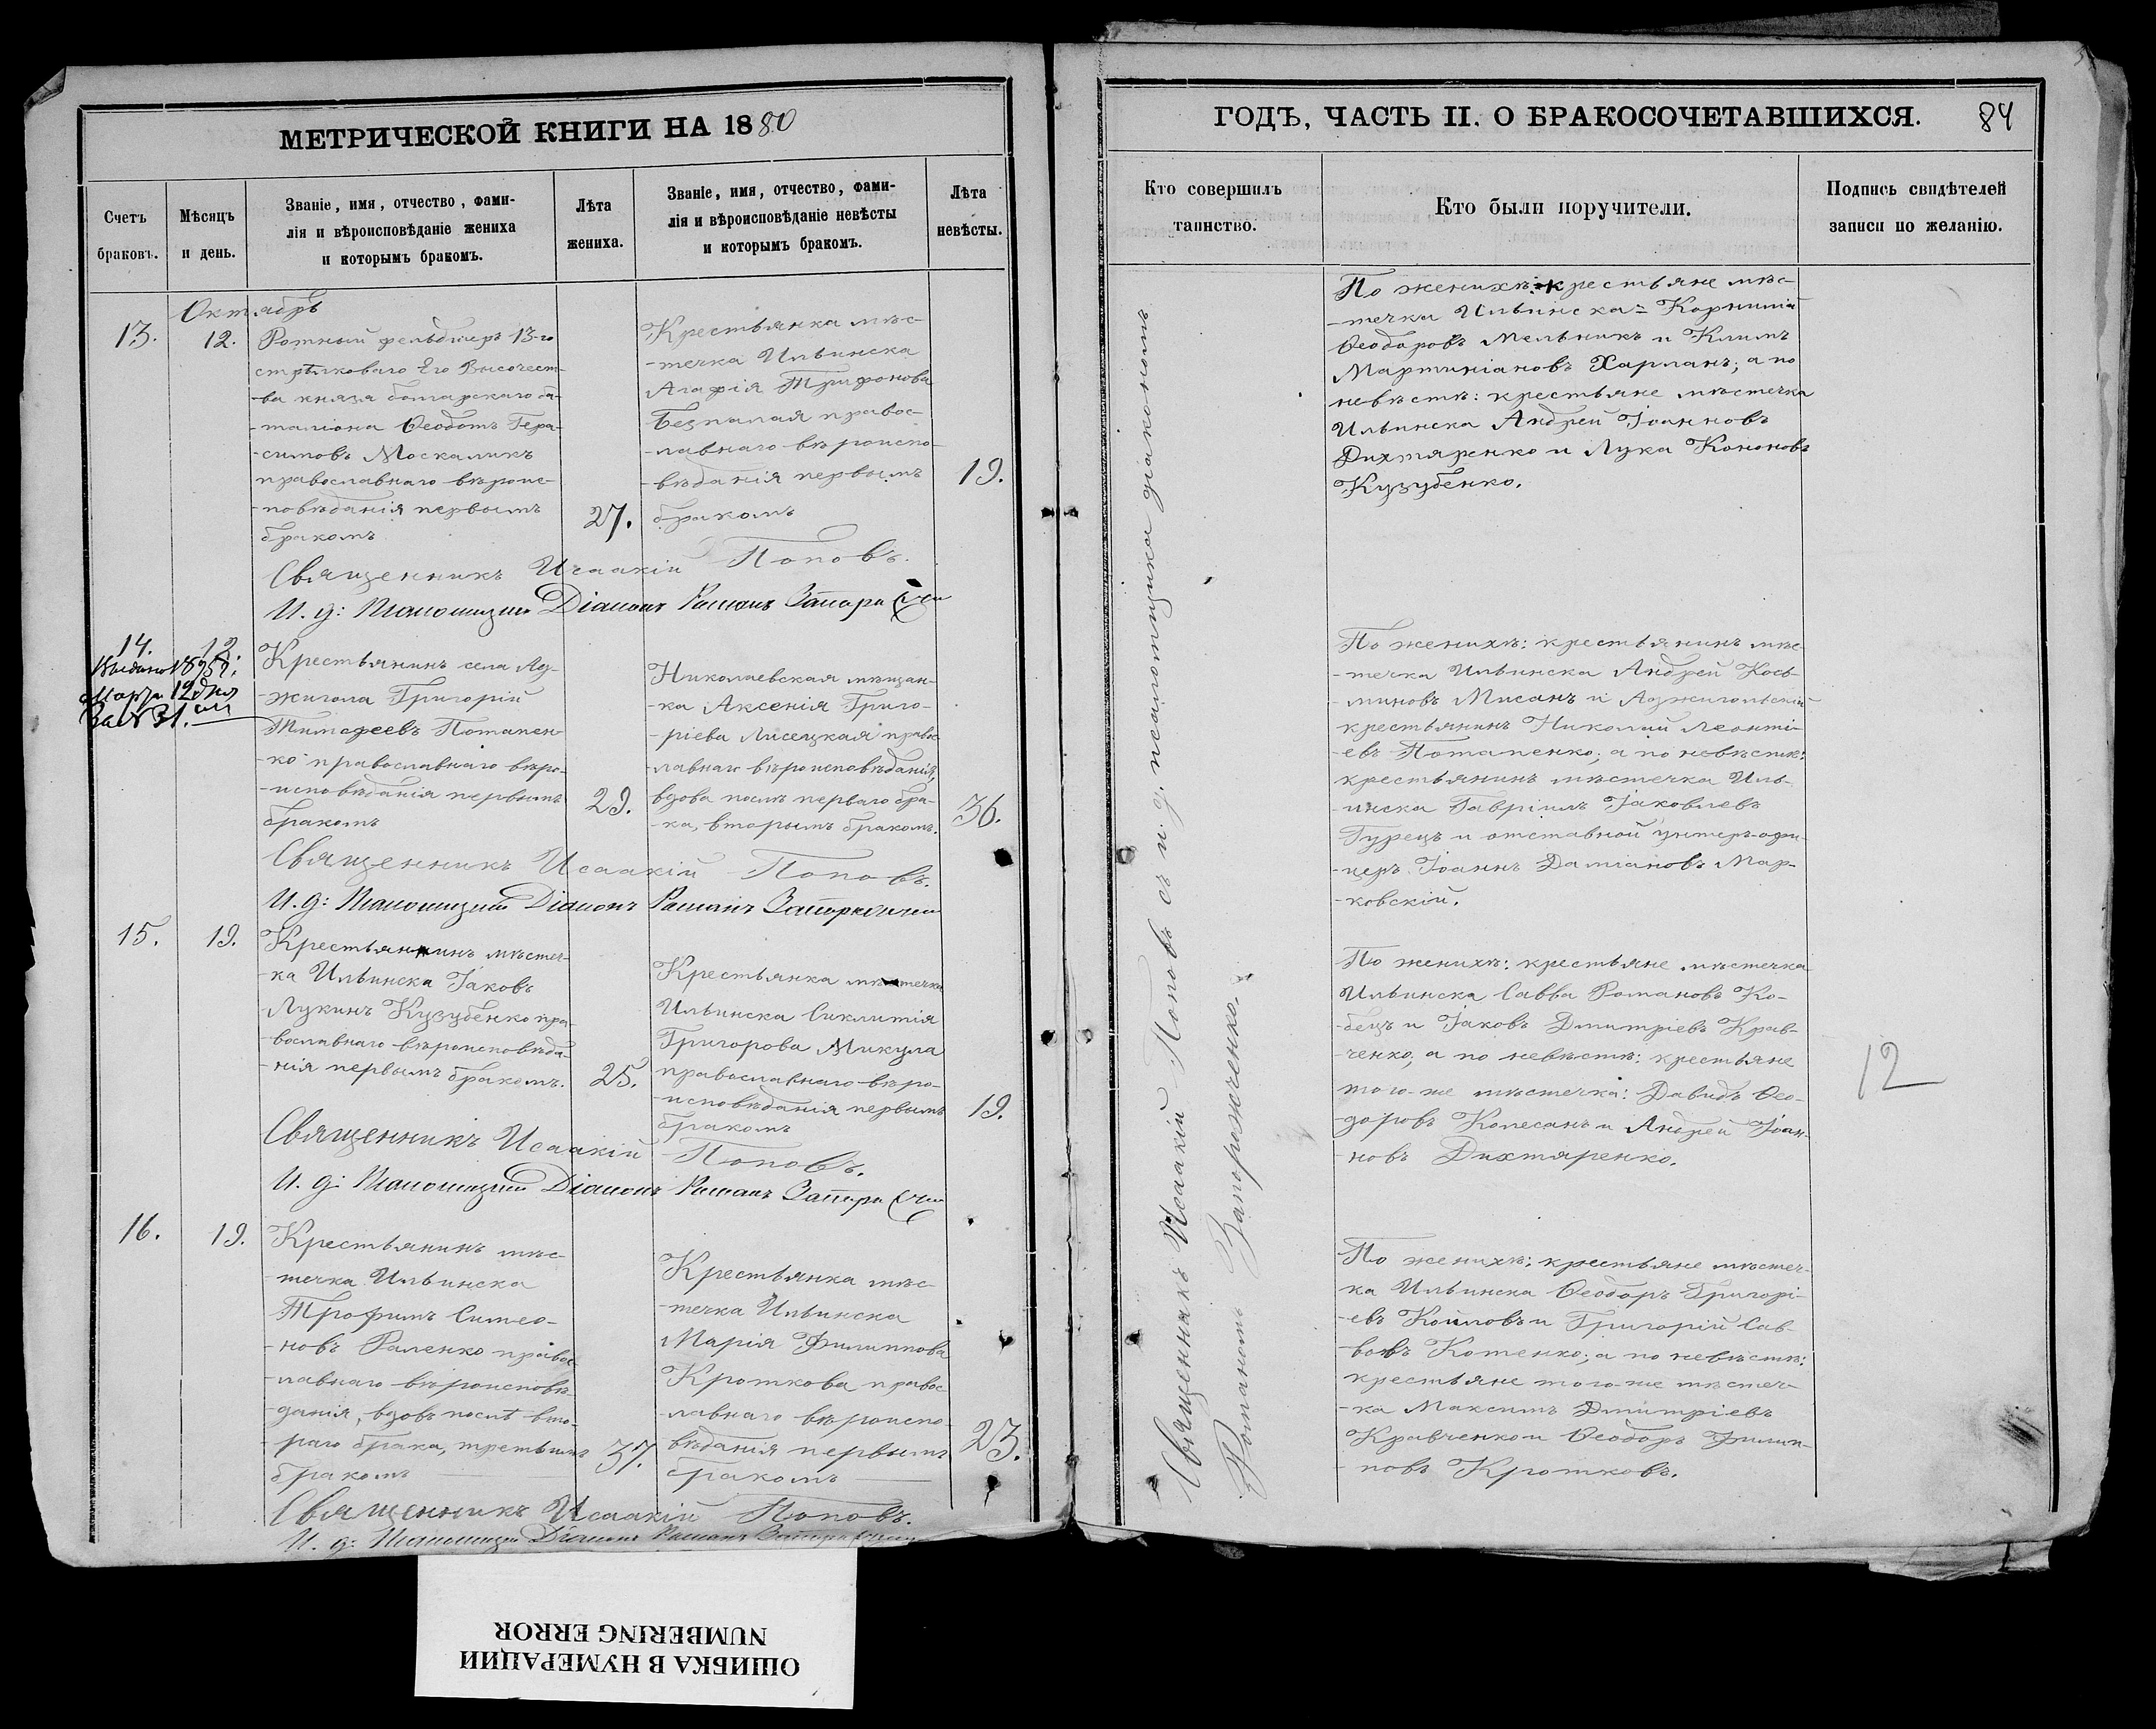 МЕТРИЧЕСКОЙ КНИГИ НА 1880
Счетъ
браковъ.
Мѣсяцъ
и день.
Званіе, имя, отчество, фами-
лія и вѣроисповѣданіе жениха
и которымъ бракомъ.
Лѣта
жениха.
Званіе, имя, отчество, фами-
лія и вѣроисповѣданіе невѣсты
и которымъ бракомъ.
Лѣта
невѣсты.
Октябрь
13.
12.
Ротный фельдшеръ 13-го
стрѣлковаго Его Высочест-
-ва князя болгарскаго ба-
-таліона Ѳеодотъ Гера-
-симовъ Москаликъ
православнаго вѣроис-
-повѣданія первымъ
бракомъ
27.
Крестьянка мѣс-
-течка Ильинска
Агафія Трифонова
Безпалая правос-
-лавнаго вѣроиспо-
-вѣданія первымъ
бракомъ
19.
Священникъ Исаакій Поповъ.
И. д: Псаломщика Діаконъ Романъ
14.
12.
Выдано 1895 г.
Марта 12 дня
за № 31.
Крестьянинъ села Ад-
-жигола Григорій
Тимофеевъ Потапен-
-ко православнаго вѣро-
-исповѣданія первымъ
бракомъ
29.
Николаевская мѣщан-
-ка Аксенія Григо-
-ріева Лисецкая правос-
-лавнаго вѣроисповѣданія,
вдова послѣ перваго бра-
-ка, вторымъ бракомъ.
36.
Священникъ Исаакій Поповъ.
И. д: Псаломщика Діаконъ Романъ
15.
19.
Крестьянинъ мѣстеч-
-ка Ильинска Іаковъ
Лукинъ Кузубенко пра-
-вославнаго вѣроисповѣда-
-нія первымъ бракомъ.
25.
Крестьянка мѣстечка
Ильинска Синклитія
Григорова Микула
православнаго вѣро-
-исповѣданія первымъ
бракомъ
19.
Священникъ Исаакій Поповъ.
И. д: Псаломщика Діаконъ Романъ
16.
19.
Крестьянинъ мѣс-
-течка Ильинска
Трофимъ Симео-
-новъ Раленко правос-
-лавнаго вѣроисповѣ-
-данія, вдовъ послѣ вто-
-раго брака, третьимъ
бракомъ
37.
Крестьянка мѣс-
-течка Ильинска
Марія Филиппова
Кроткова правос-
-лавнаго вѣроиспо-
-вѣданія первымъ
бракомъ
23.
Священникъ Исаакій Поповъ.
И. д: Псаломщика Діаконъ Романъ
ГОДЪ, ЧАСТЬ II. О БРАКОСОЧЕТАВШИХСЯ.
84
Кто совершилъ
таинство.
Кто были поручители.
Подпись свидѣтелей
записи по желанію.
Священникъ Исаакій Поповъ съ и. д. псаломщика діакономъ
Романомъ Запорожченко.
По женихѣ: крестьяне мѣс-
-течка Ильинска Корнилій
Ѳеодоровъ Мельникъ и Климъ
Мартиніановъ Харланъ; а по
невѣстѣ: крестьяне мѣстечка
Ильинска Андрей Іоанновъ
Дихтяренко и Лука Кононовъ
Кузубенко.
По женихѣ: крестьянинъ мѣс-
-течка Ильинска Андрей Кось-
-миновъ Мисанъ и Аджигольскій
крестьянинъ Николай Леонті-
-евъ Потапенко; а по невѣстѣ:
крестьянинъ мѣстечка Иль-
-инска Гавріилъ Іаковлевъ
Гурецъ и отставной унтеръ-офи-
-церъ Іоаннъ Даміановъ Мар-
-ковскій.
По женихѣ: крестьяне мѣстечка
Ильинска Савва Романовъ Ко-
-бецъ и Іаковъ Дмитріевъ Крав-
-ченко, а по невѣстѣ: крестьяне
того-же мѣстечка: Давидъ Ѳео-
-доровъ Колесанъ и Андрей Іоан-
-новъ Дихтяренко.
12
По женихѣ: крестьяне мѣстеч-
-ка Ильинска Ѳеодоръ Григорі-
-евъ Койловъ и Григорій Сав-
-вовъ Котенко; а по невѣстѣ:
крестьяне того-же мѣстеч-
-ка Максимъ Дмитріевъ
Кравченко и Ѳеодоръ Филип-
-повъ Кротковъ.
ОШИБКА В НУМЕРАЦИИ
NUMBERING ERROR